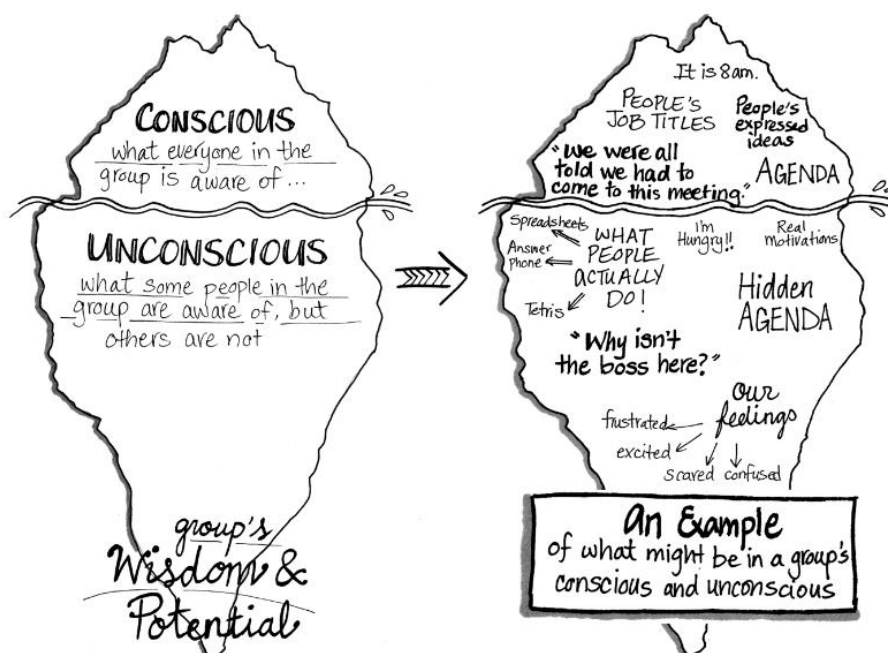 CONSCIOUS
what everyone in the
group is aware of ...
UNCONSCIOUS
what some people in the
group are aware of, but
others are not
group's
Wisdom &
Potential
It is 8am.
PEOPLE'S
JOB TITLES
People's
expressed
ideas
"We were all
told we had to
come to this meeting."
AGENDA
Spreadsheets
Answer
phone
Tetris
WHAT
PEOPLE
ACTUALLY
DO!
I'm
Hungry!!
Real
Motivations
Hidden
AGENDA
"Why isn't
the boss here?"
our
feelings
frustrated
excited
scared confused
an Example
of what might be in a group's
conscious and unconscious